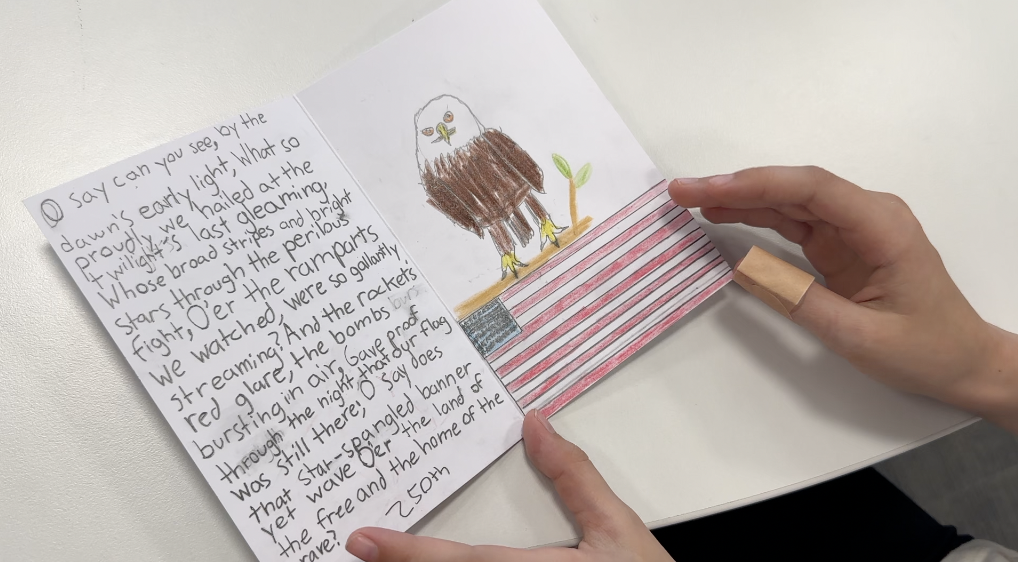 O say can you see, by the
dawn's early light, What so
proudly we hailed at the
twilight's last gleaming,
Whose broad stripes and bright
stars through the perilous
fight, O'er the ramparts
we watched, were so gallantly
streaming? And the rockets
red glare, the bombs
bursting in air, Gave proof
through the night that our flag
was still there; O say does
that star-spangled banner
yet wave O'er the land of
the free and the home of the
250th